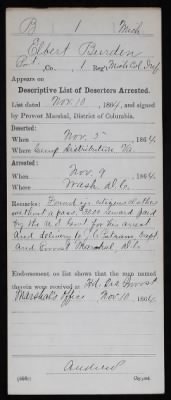 B 1 Mich
Elbert Burden
Pvt, Co. 1 Reg't Mich Col. Inf
Appears on
Descriptive List of Deserters Arrested.
List dated Nov. 10, 1864, and signed
by Provost Marshal, District of Columbia.
Deserted:
When Nov. 5 1864
Where Camp Distribution, Va.
Arrested:
When Nov. 9 1864
Where Wash D.C.
Remarks: Found in citizens clothes
without a pass. $30.00 reward paid
by the U.S. Govt for his arrest
and delivery to Capt.
and Provost Marshal, D.C.
Endorsement on list shows that the man named
therein were received at Hd. Qrs. Provost
Marshal's Office, Nov. 10, 1864
(466)
Copyist.